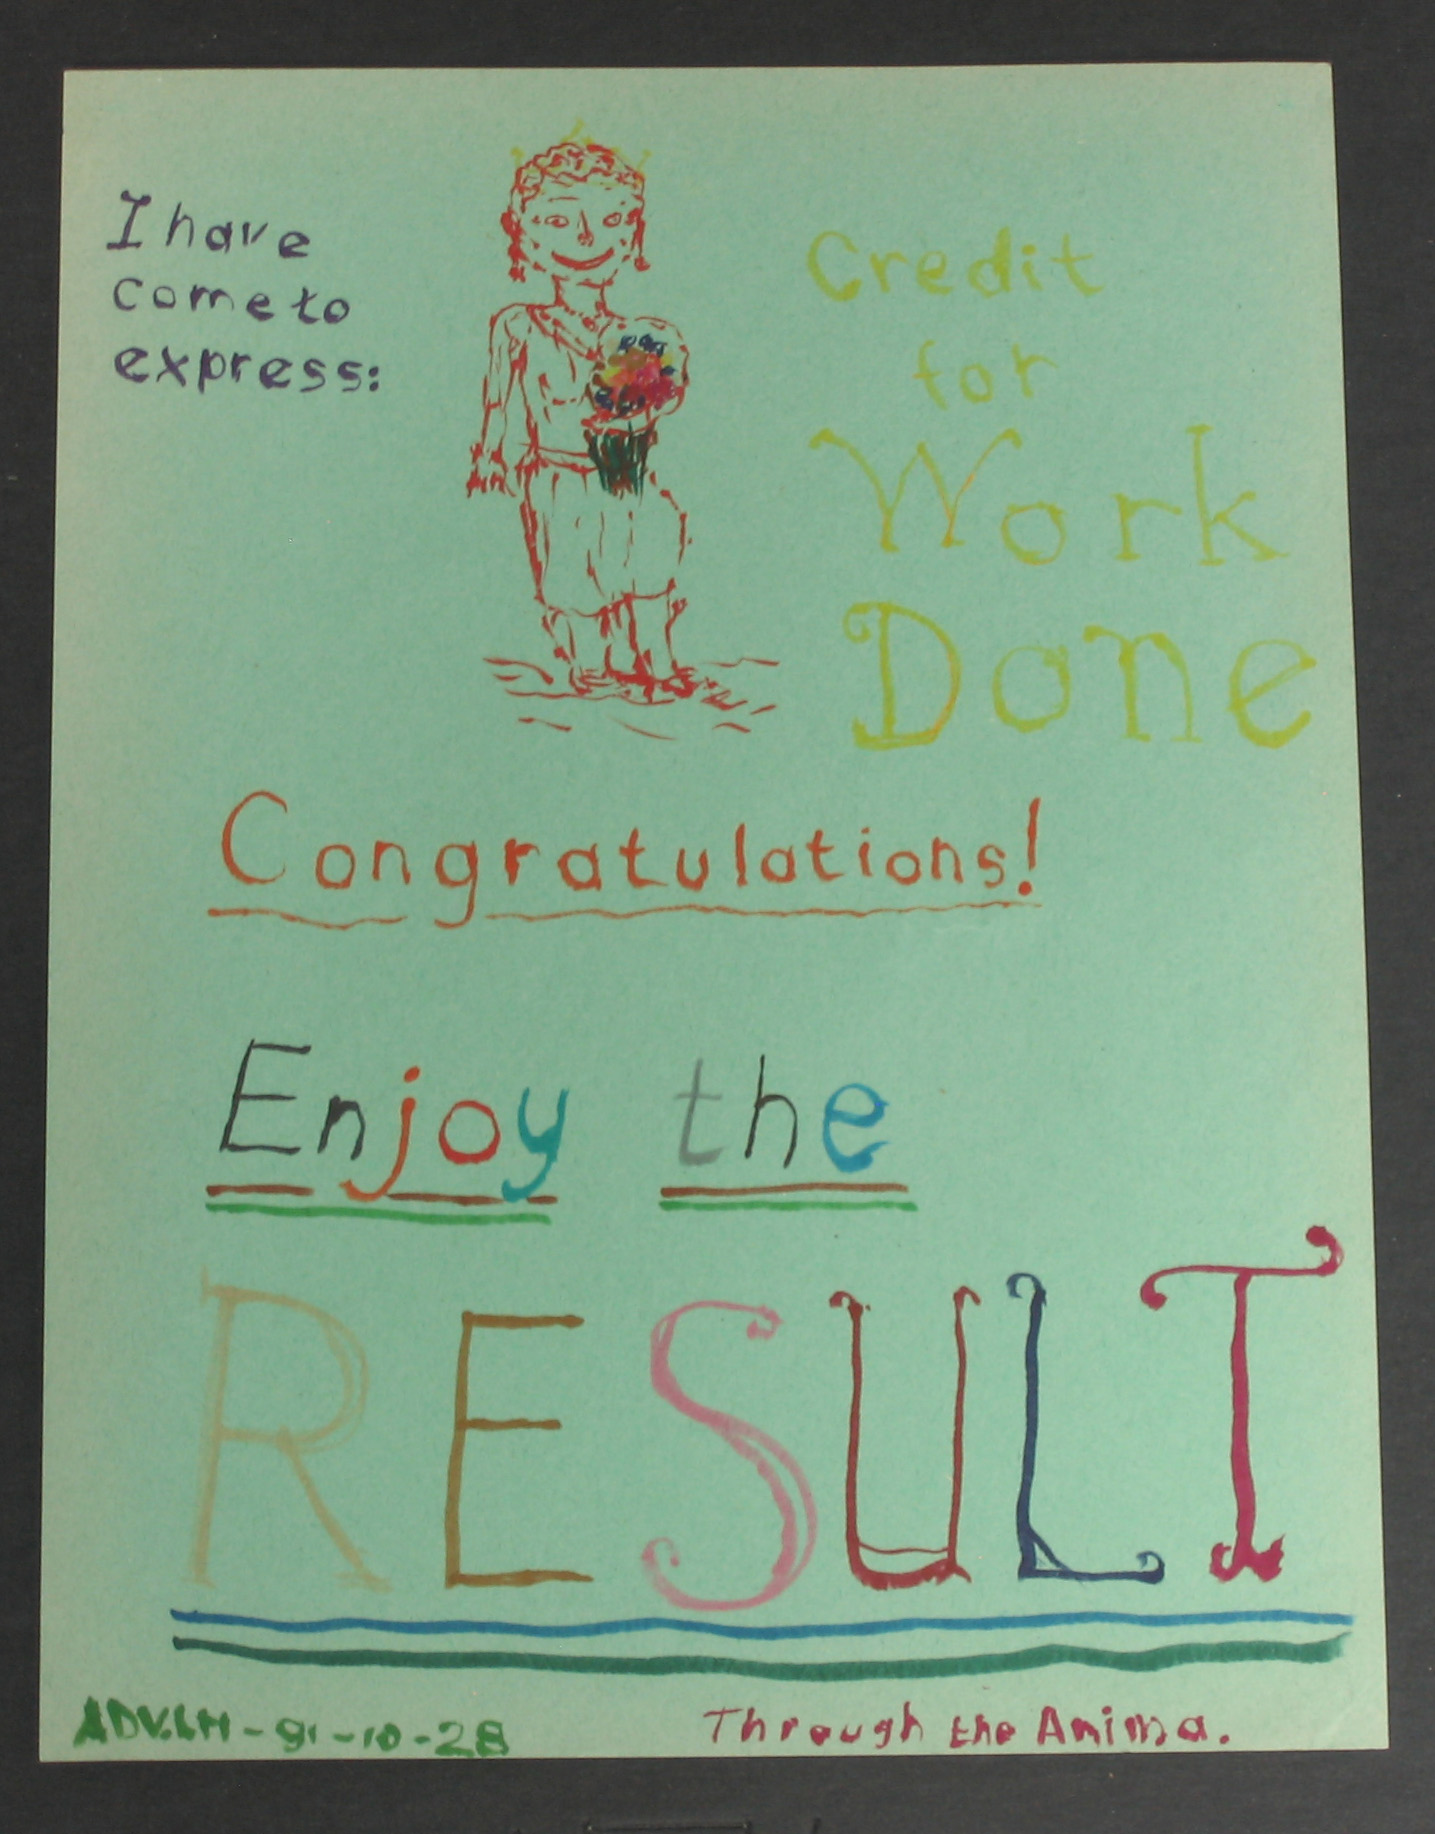 I have
come to
express:
Credit
for
Work
Done
Congratulations!
Enjoy the
RESULT
ADV.LH-91-10-28
Through the Anima.